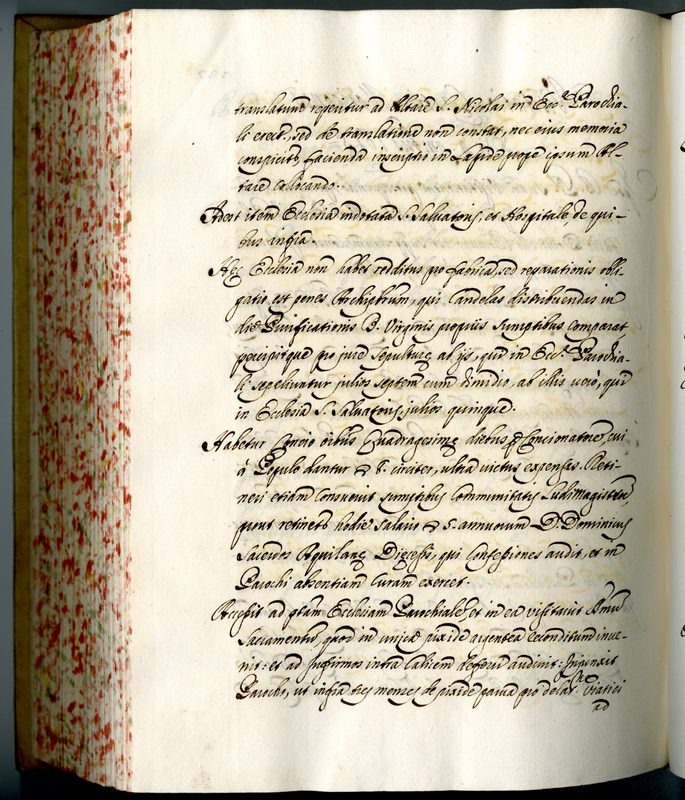 translatum reperitur ad Altare S. Nicolai in Eccl.ª Parochia-
li erect., sed de translatione non constat, nec eius memoria
conspicitr, facienda inscriptio in Lapide prope ipsum Al-
tare collocando.
Adest item Ecclesia indotata S. Salvatoris, et Hospitale, de qui-
bus infra.
Hec Ecclesia non habet redditus pro fabrica, sed reparationis obli-
gatio est penes Archiptrum, qui Candelas distribuendas in
die Purificationis B. Virginis propriis sumptibus comparat
percipitque pro jure sepulturę ab ijs, qui in Eccl.ª Parochia-
li sepeliuntur julios septem cum dimidio, ab illis verò, qui
in Ecclesia S. Salvatoris julios quinque.
Habetur Concio oibus Quadragesimę diebus p Concionatorem, cui
à Populo dantur 8. circiter, ultra victus expensas. Reti-
neri etiam consuevit sumptibus Communitatis Ludimagister,
prout retinetr hodie salario 5. annuorum D. Dominicus
Sacerdos Aquilanę Dięcesis, qui Confessiones audit, et in
Parochi absentiam curam exercet.
Accessit ad qtam Ecclesiam Parochialem et in ea visitavit Smum
Sacramentum, quod in unica pixide argentea reconditum inve-
nit: et ad Infirmos intra calicem deferri audivit: Injunxit
Parocho, ut infra tres menses de pixide parva pro delat. Viatici
ad